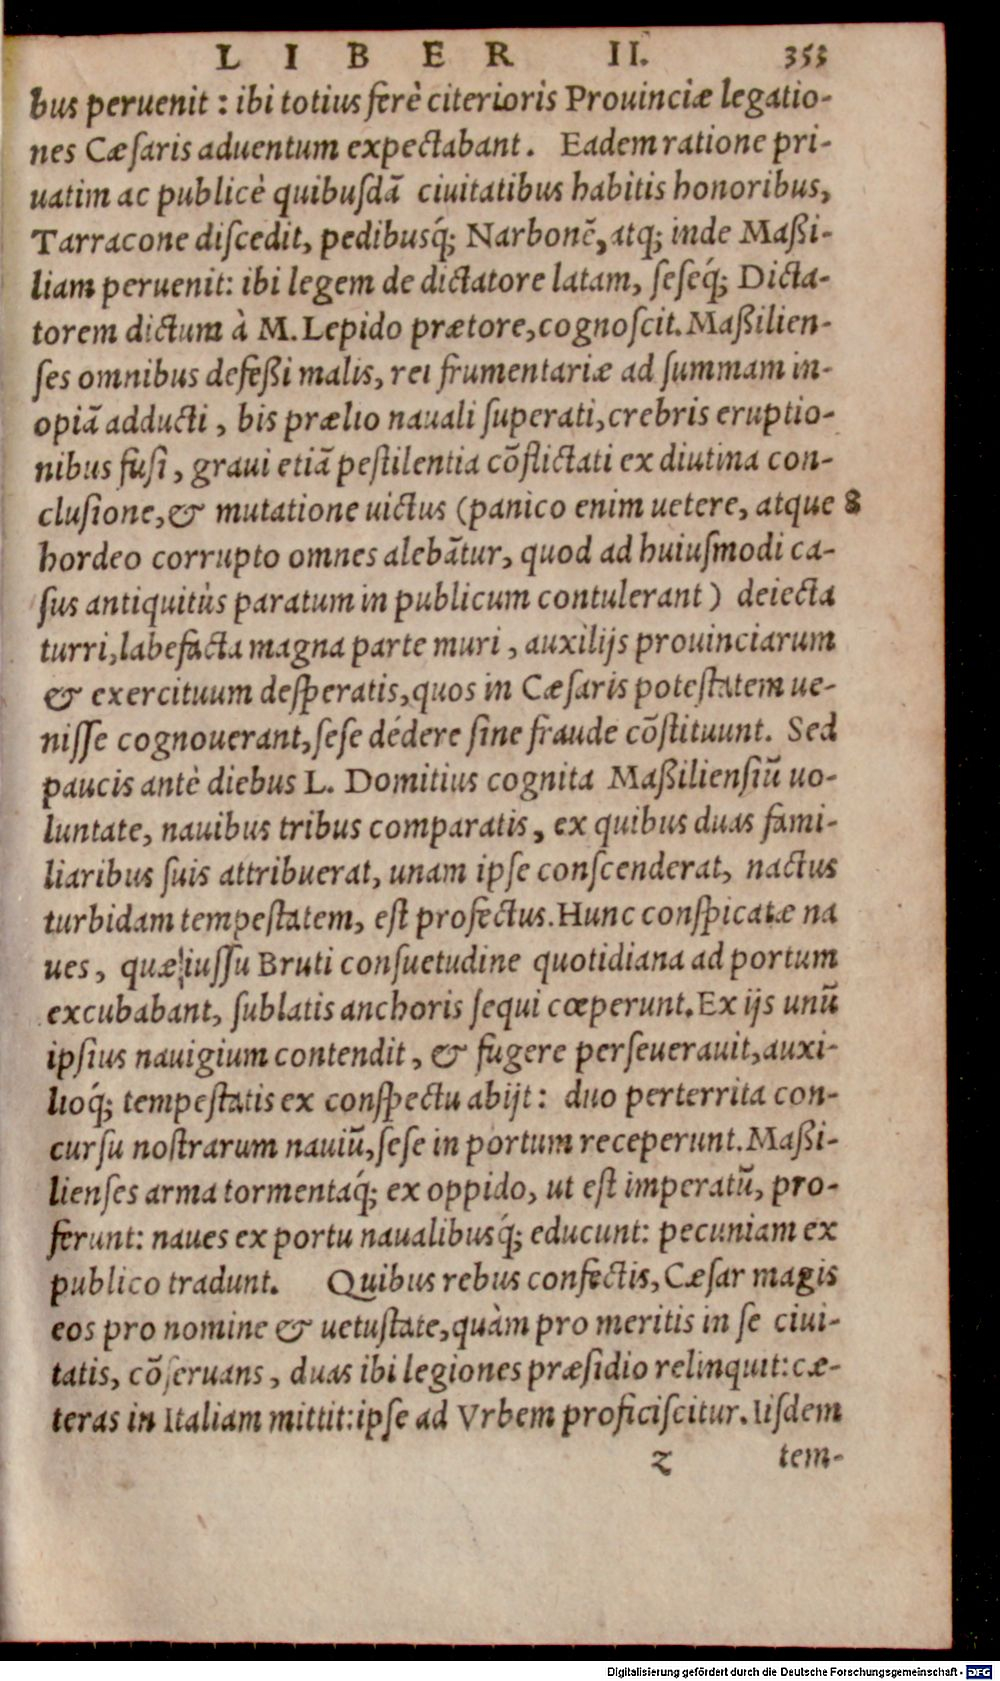 LIBER II. 353
bus peruenit : ibi totius ferè citerioris Prouinciæ legatio-
nes Cæſaris aduentum expectabant. Eadem ratione pri-
uatim ac publicè quibuſdã ciuitatibus habitis honoribus,
Tarracone diſcedit, pedibusq́; Narbonẽ, atq; inde Maßi-
liam peruenit: ibi legem de dictatore latam, ſeſeq́; Dicta-
torem dictum à M. Lepido prætore, cognoſcit. Maßilien-
ſes omnibus defeßi malis, rei frumentariæ ad ſummam in-
opiã adducti, bis prælio nauali ſuperati, crebris eruptio-
nibus fuſi, graui etiã peſtilentia cõflictati ex diutina con-
cluſione, & mutatione uictus (panico enim uetere, atque 8
hordeo corrupto omnes alebãtur, quod ad huiuſmodi ca-
ſus antiquitùs paratum in publicum contulerant) deiecta
turri, labefacta magna parte muri, auxilijs prouinciarum
& exercituum deſperatis, quos in Cæſaris poteſtatem ue-
niſſe cognouerant, ſeſe dédere ſine fraude cõſtituunt. Sed
paucis antè diebus L. Domitius cognita Maßilienſiũ uo-
luntate, nauibus tribus comparatis, ex quibus duas fami-
liaribus ſuis attribuerat, unam ipſe conſcenderat, nactus
turbidam tempeſtatem, eſt profectus. Hunc conſpicatæ na
ues, quæ iuſſu Bruti conſuetudine quotidiana ad portum
excubabant, ſublatis anchoris ſequi cœperunt. Ex ijs unũ
ipſius nauigium contendit, & fugere perſeuerauit, auxi-
lioq́; tempeſtatis ex conſpectu abijt: duo perterrita con-
curſu noſtrarum nauiũ, ſeſe in portum receperunt. Maßi-
lienſes arma tormentaq́; ex oppido, ut eſt imperatũ, pro-
ferunt: naues ex portu naualibusq́; educunt: pecuniam ex
publico tradunt. Quibus rebus confectis, Cæſar magis
eos pro nomine & uetuſtate, quàm pro meritis in ſe ciui-
tatis, cõſeruans, duas ibi legiones præſidio relinquit: cæ-
teras in Italiam mittit: ipſe ad Vrbem proficiſcitur. Iiſdem
z tem-
Digitalisierung gefördert durch die Deutsche Forschungsgemeinschaft - DFG